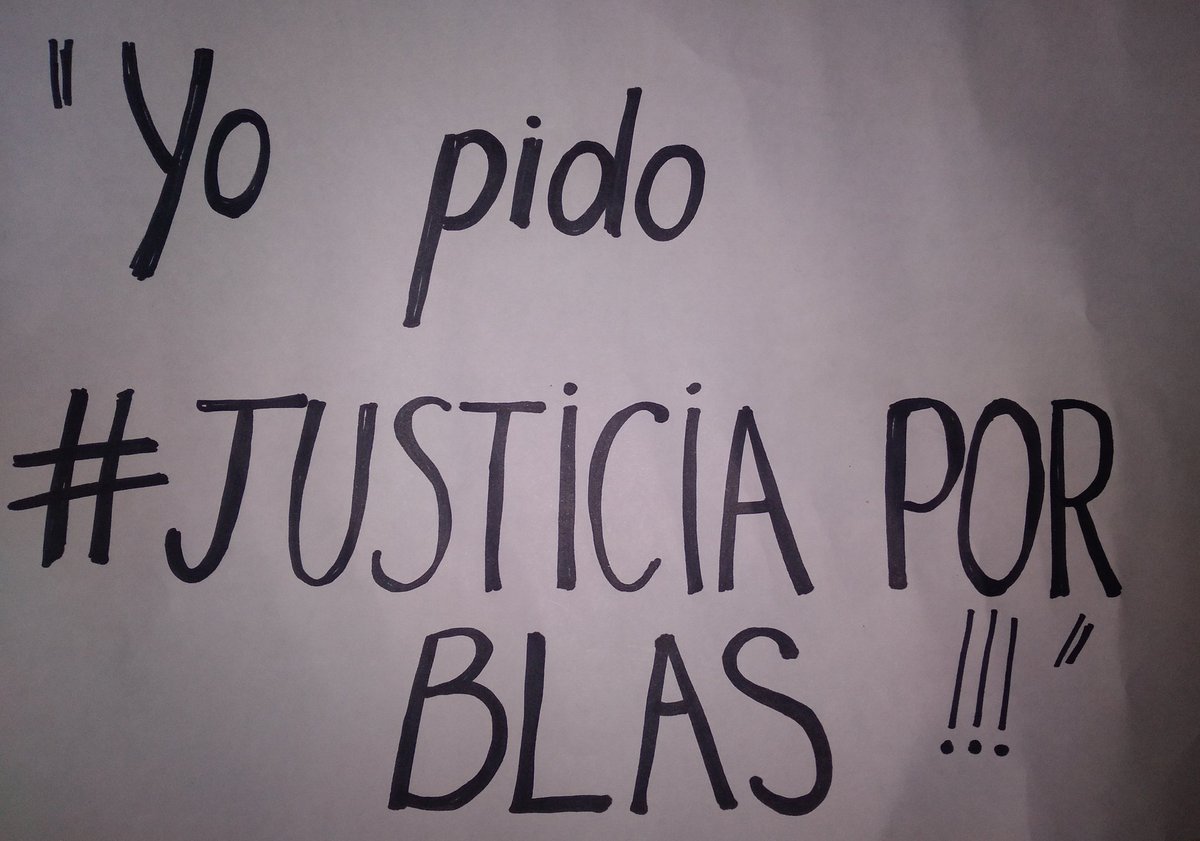 "Yo pido
#JUSTiCiA POR
BLAS !!!"